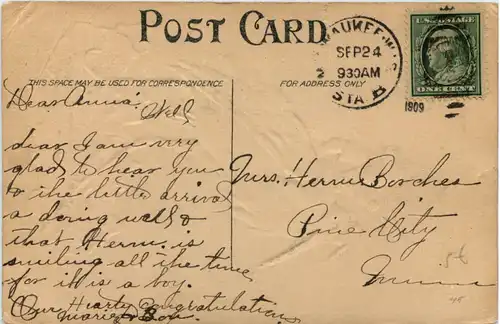 POST CARD
THIS SPACE MAY BE USED FOR CORRESPONDENCE
FOR ADDRESS ONLY
AUKEE, WIS
SEP 24
930AM
STA B
1909
U.S. POSTAGE
ONE CENT
Dear Anna. Well
dear I am very
glad to hear you
& the little arrival
a doing well &
that Herm. is
smiling all the time
for it is a boy.
Our Hearty Congratulations
Marie & Son.
Mrs. Herm Borches
Pine City
Minn